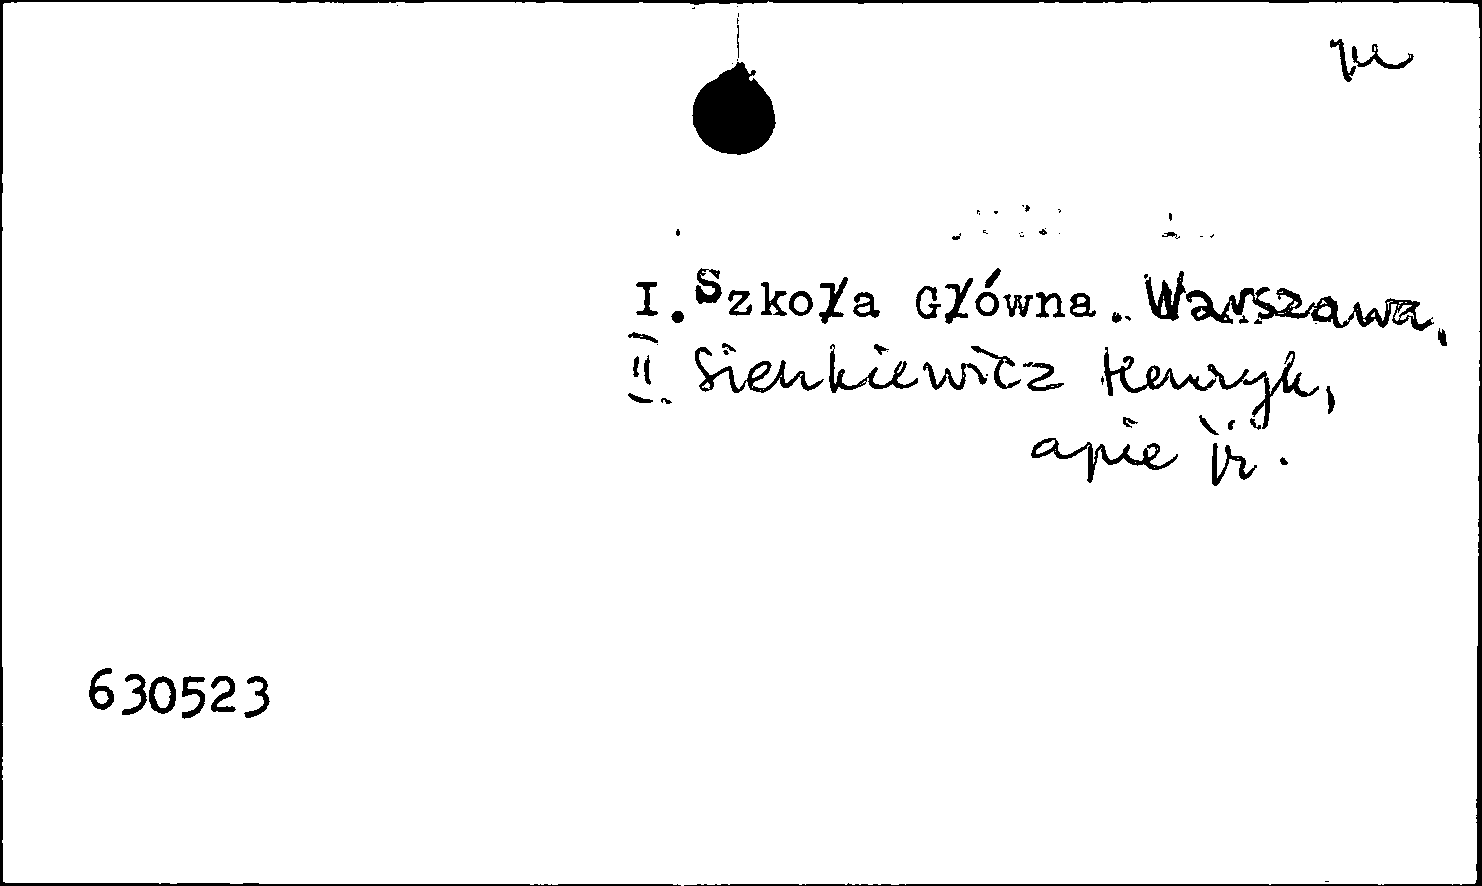 I. Szkoła Główna. Warszawa,
II. Sienkiewicz Henryk,
apie jį.
630523